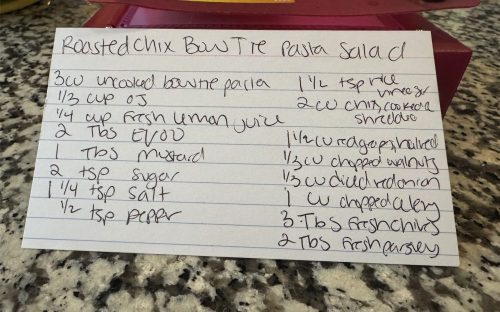 Roasted Chix Bow Tie Pasta Salad
3 cu uncooked bowtie pasta
1/3 cup OJ
1/4 cup fresh lemon juice
2 Tbs EVOO
1 Tbs mustard
2 tsp sugar
1 1/4 tsp salt
1/2 tsp pepper
1 1/2 tsp rice
vinegar
2 cu chix, cooked &
shredded
1 1/2 cu red grapes, halved
1/3 cu chopped walnuts
1/3 cu diced red onion
1 cu chopped celery
3 Tbs fresh chives
2 Tbs fresh parsley